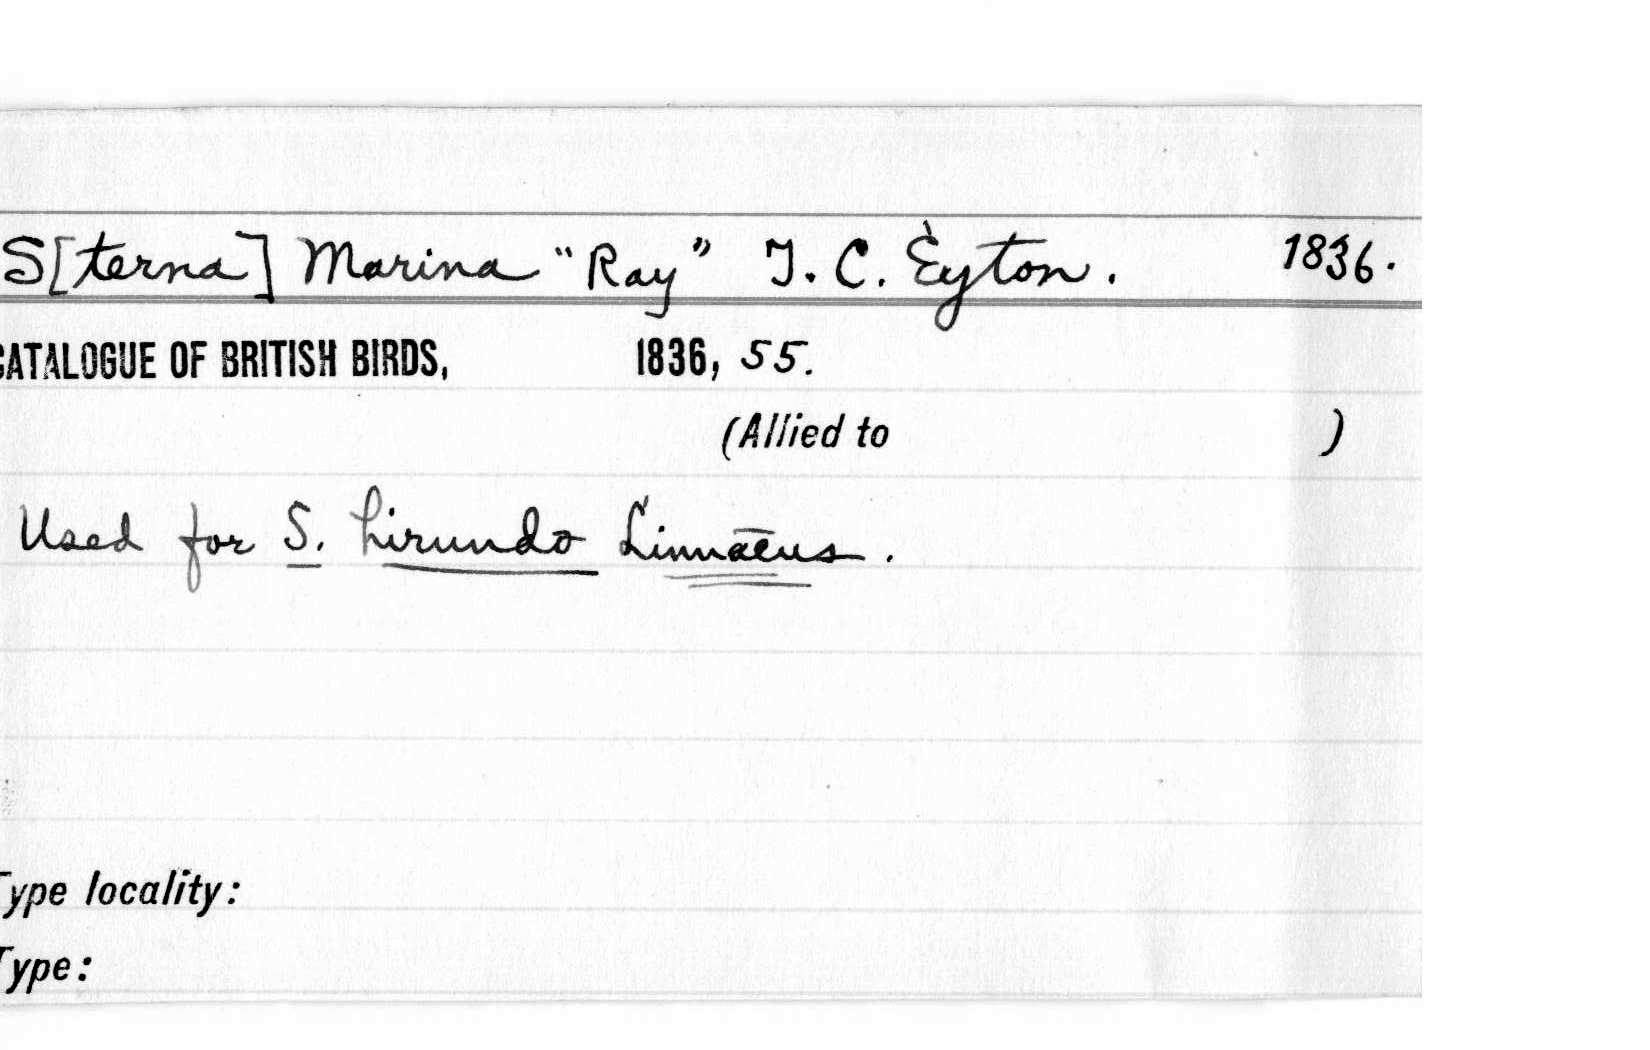 S[terna] Marina "Ray" T. C. Eyton. 1836.
CATALOGUE OF BRITISH BIRDS, 1836, 55.
(Allied to )
Used for S. hirundo Linnaeus.
Type locality:
Type: